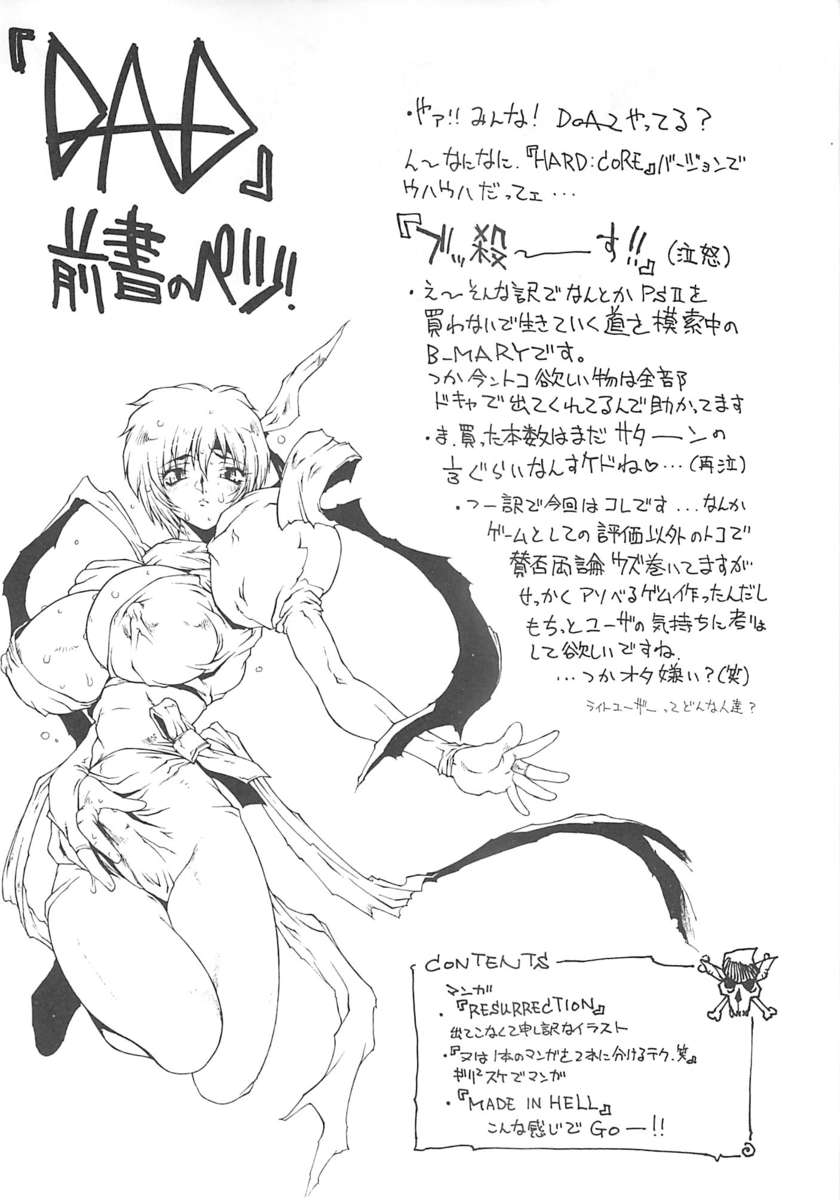 『DAD』
前書のページ!
・やァ!! みんな! DoA2やってる?
ん〜なになに、『HARD:CoRE』バージョンで
ウハウハだってェ…
『ブッ殺〜〜す!!』(泣怒)
・え〜そんな訳でなんとかPSⅡを
買わないで生きていく道を模索中の
B_MARYです。
つか今ントコ欲しい物は全部
ドキャで出てくれてるんで助かってます
・ま、買った本数はまだサターーンの
1/3ぐらいなんすケドね♡…(再泣)
・つー訳で今回はコレです…なんか
ゲームとしての評価以外のトコで
賛否両論ウズ巻いてますが
せっかくアソべるゲム作ったんだし
もちっとユーザの気持ちに考慮
して欲しいですね、
…つかオタ嫌い?(笑)
ライトユーザーってどんな人達?
CONTENTS
マンガ
・『RESURRECTION』
出てこなくて申し訳なイラスト
・『又は1本のマンガを2本に分けるテク、笑』
ギリ²スケでマンガ
・『MADE IN HELL』
こんな感じでGO—!!